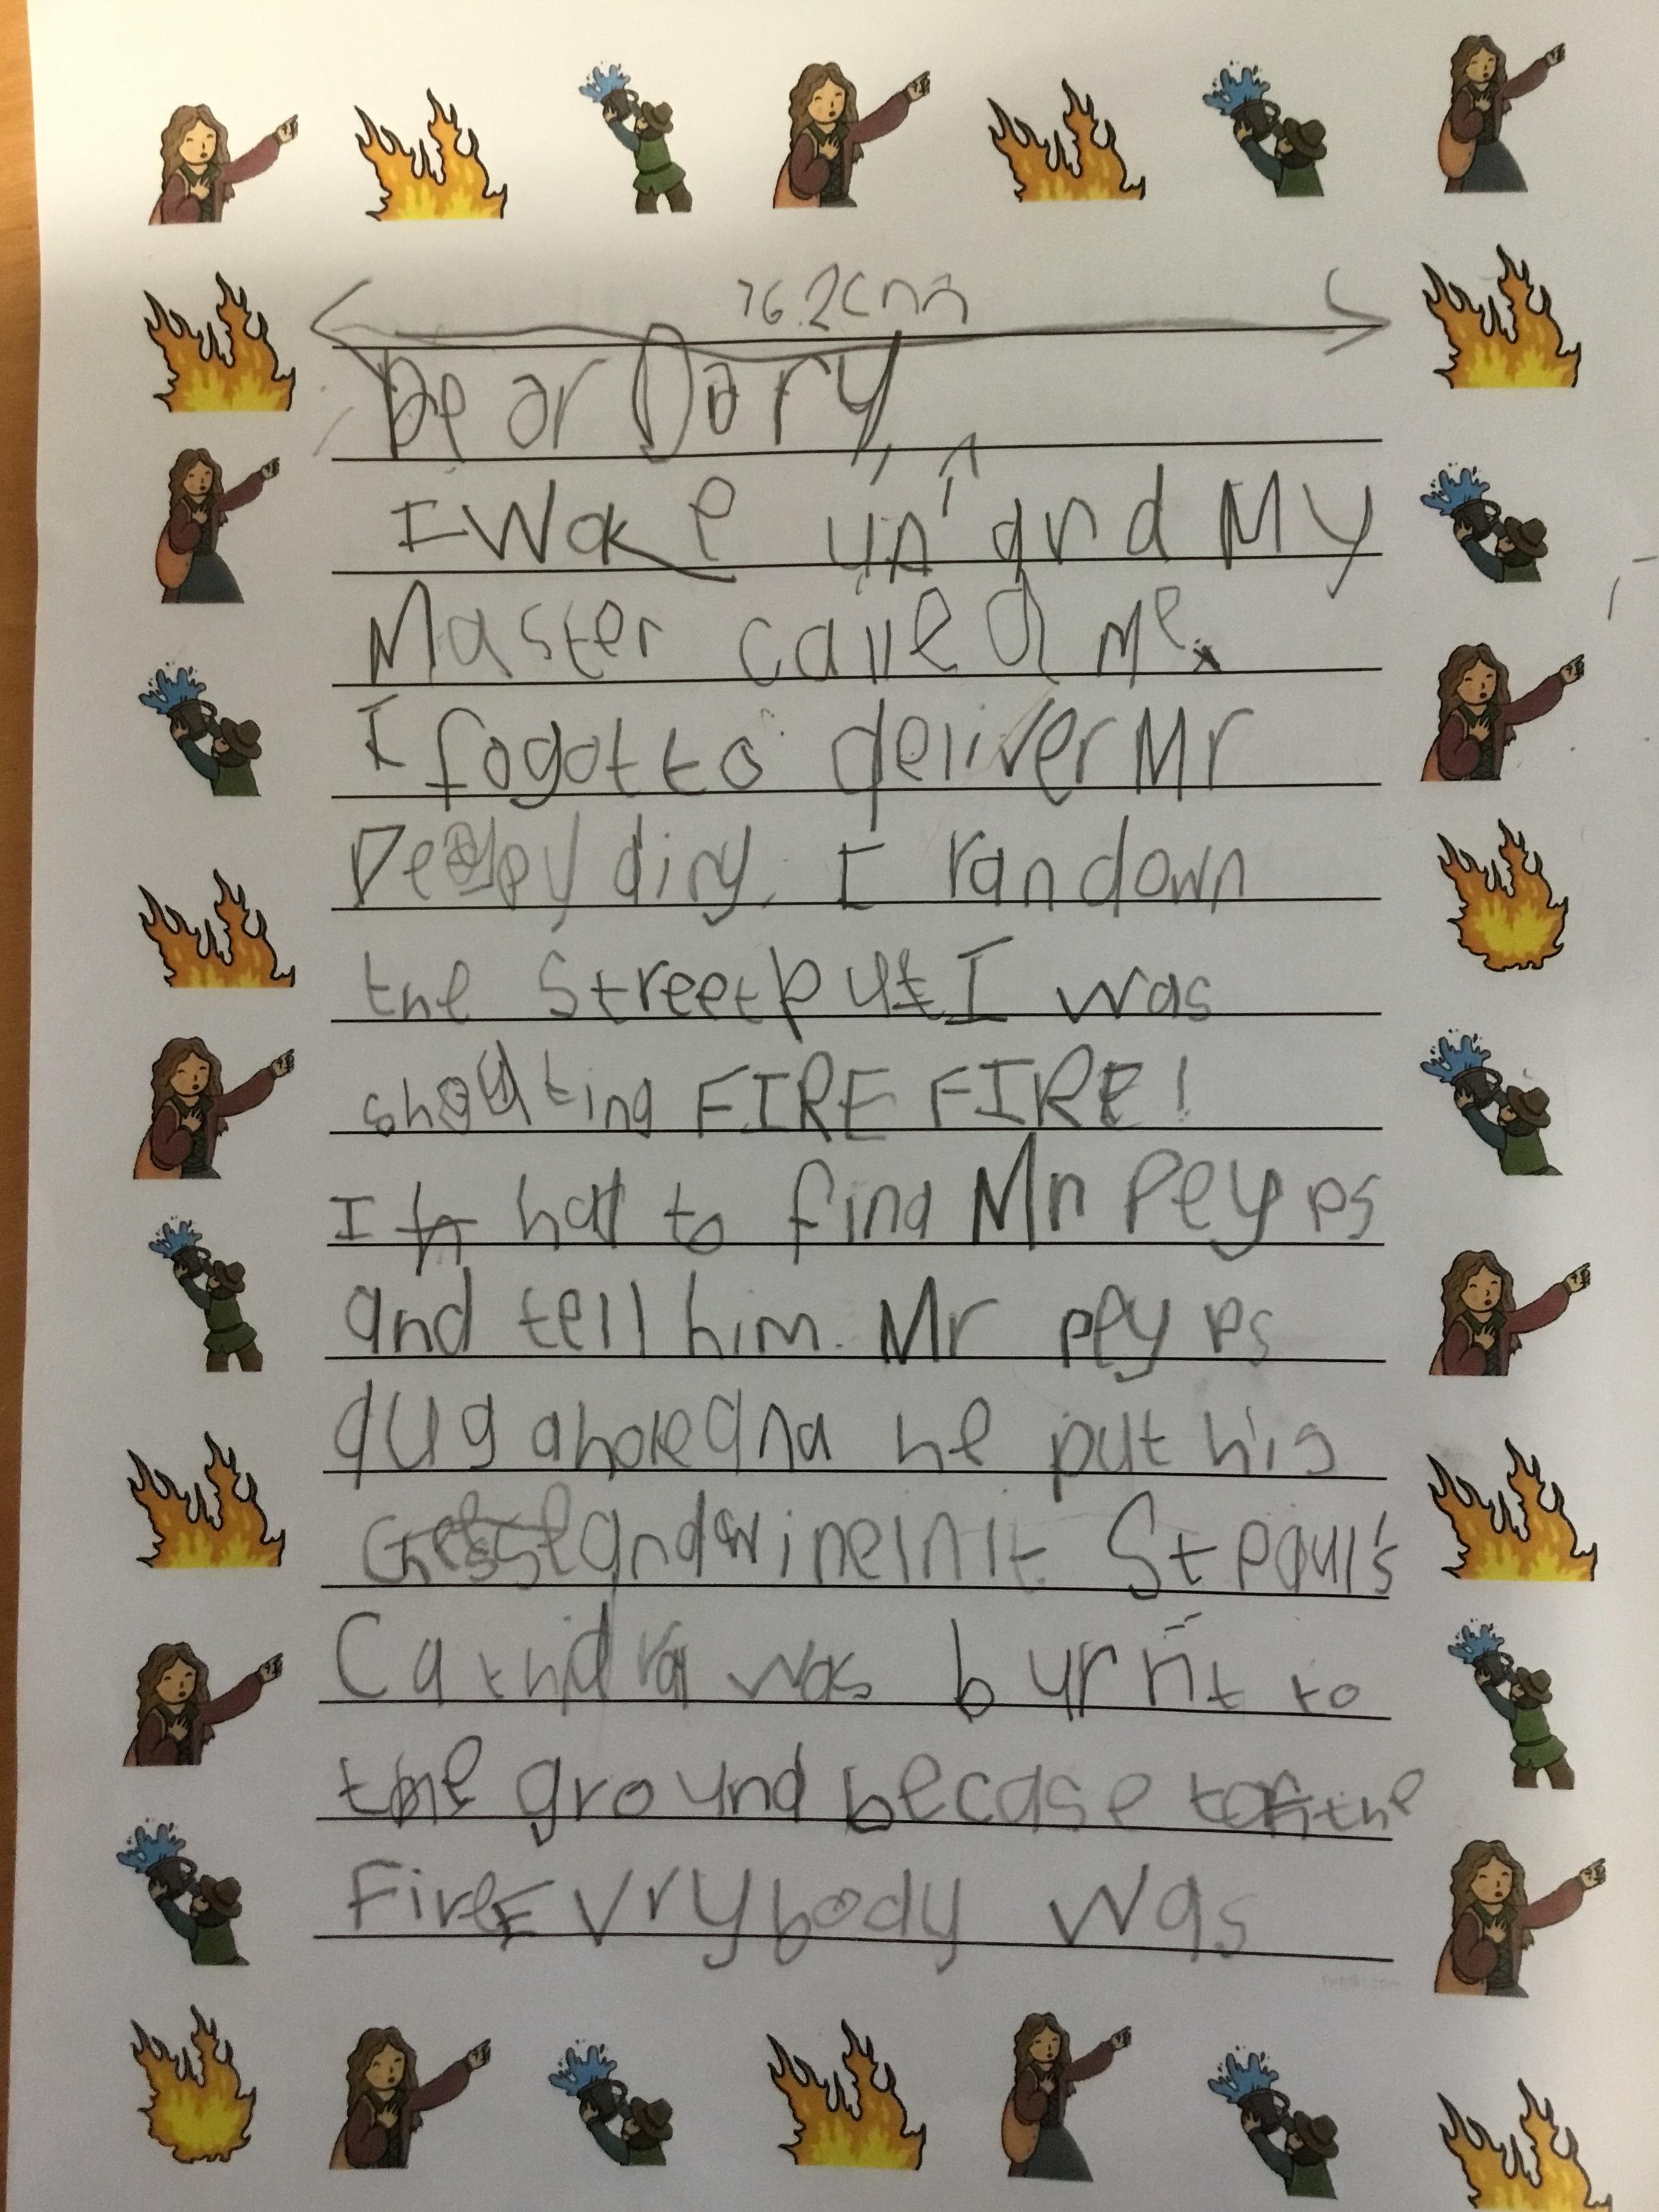 16.2cm
Dear Dary,
I Wake up and My
Master called me.
I fogot to deliver Mr
diry. I ran down
the Street but I was
shouting FIRE FIRE!
I hat to find Mr Peyps
and tell him. Mr peyps
dug a hole and he put his
and wine in it. St paul's
Cathdral was burnt to
the ground becase of the
Fire Evrybody was